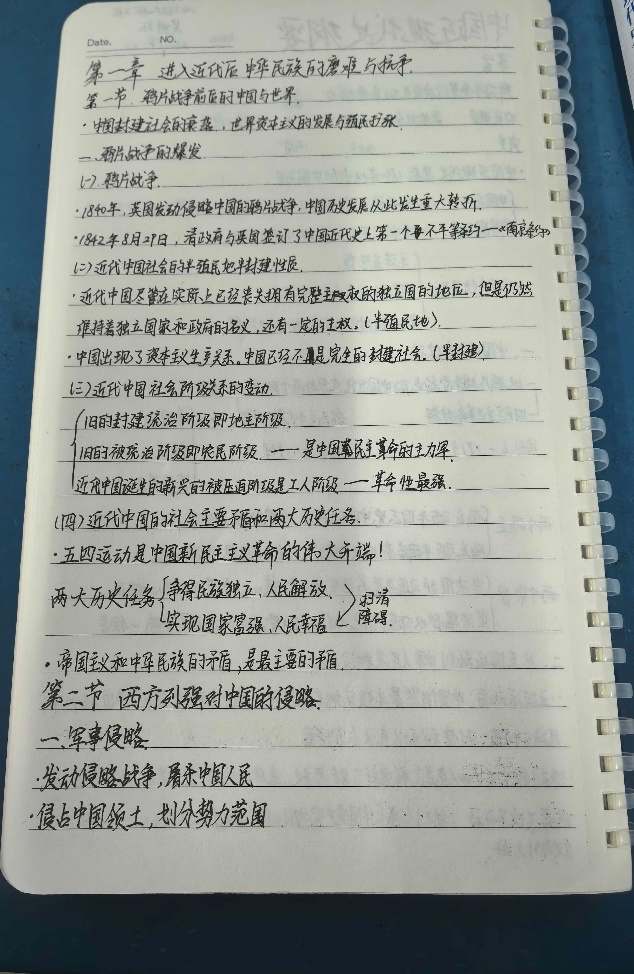 Date.        NO.
第一章 进入近代后中华民族的磨难与抗争.
第一节. 鸦片战争前后的中国与世界.
·中国封建社会的衰落，世界资本主义的发展与殖民扩张.
一.鸦片战争的爆发.
(一).鸦片战争.
·1840年，英国发动侵略中国的鸦片战争，中国历史发展从此发生重大转折.
·1842年8月29日，清政府与英国签订了中国近代史上第一个不平等条约—《南京条约》
(二)近代中国社会的半殖民地半封建性质.
·近代中国尽管在实际上已经丧失拥有完整主权的独立国的地位，但是仍然
维持着独立国家和政府的名义，还有一定的主权.(半殖民地).
·中国出现了资本主义生产关系.中国已经不是完全的封建社会.(半封建)
(三)近代中国社会阶级关系的变动.
旧的封建统治阶级即地主阶级.
旧的被统治阶级即农民阶级 —— 是中国民主革命的主力军.
近代中国诞生的新兴的被压迫阶级是工人阶级 — 革命性最强.
(四)近代中国的社会主要矛盾和两大历史任务.
·五四运动是中国新民主主义革命的伟大开端！
两大历史任务
争得民族独立，人民解放、
实现国家富强，人民幸福
扫清
障碍.
·帝国主义和中华民族的矛盾，是最主要的矛盾.
第二节 西方列强对中国的侵略.
一.军事侵略.
·发动侵略战争，屠杀中国人民
·侵占中国领土，划分势力范围